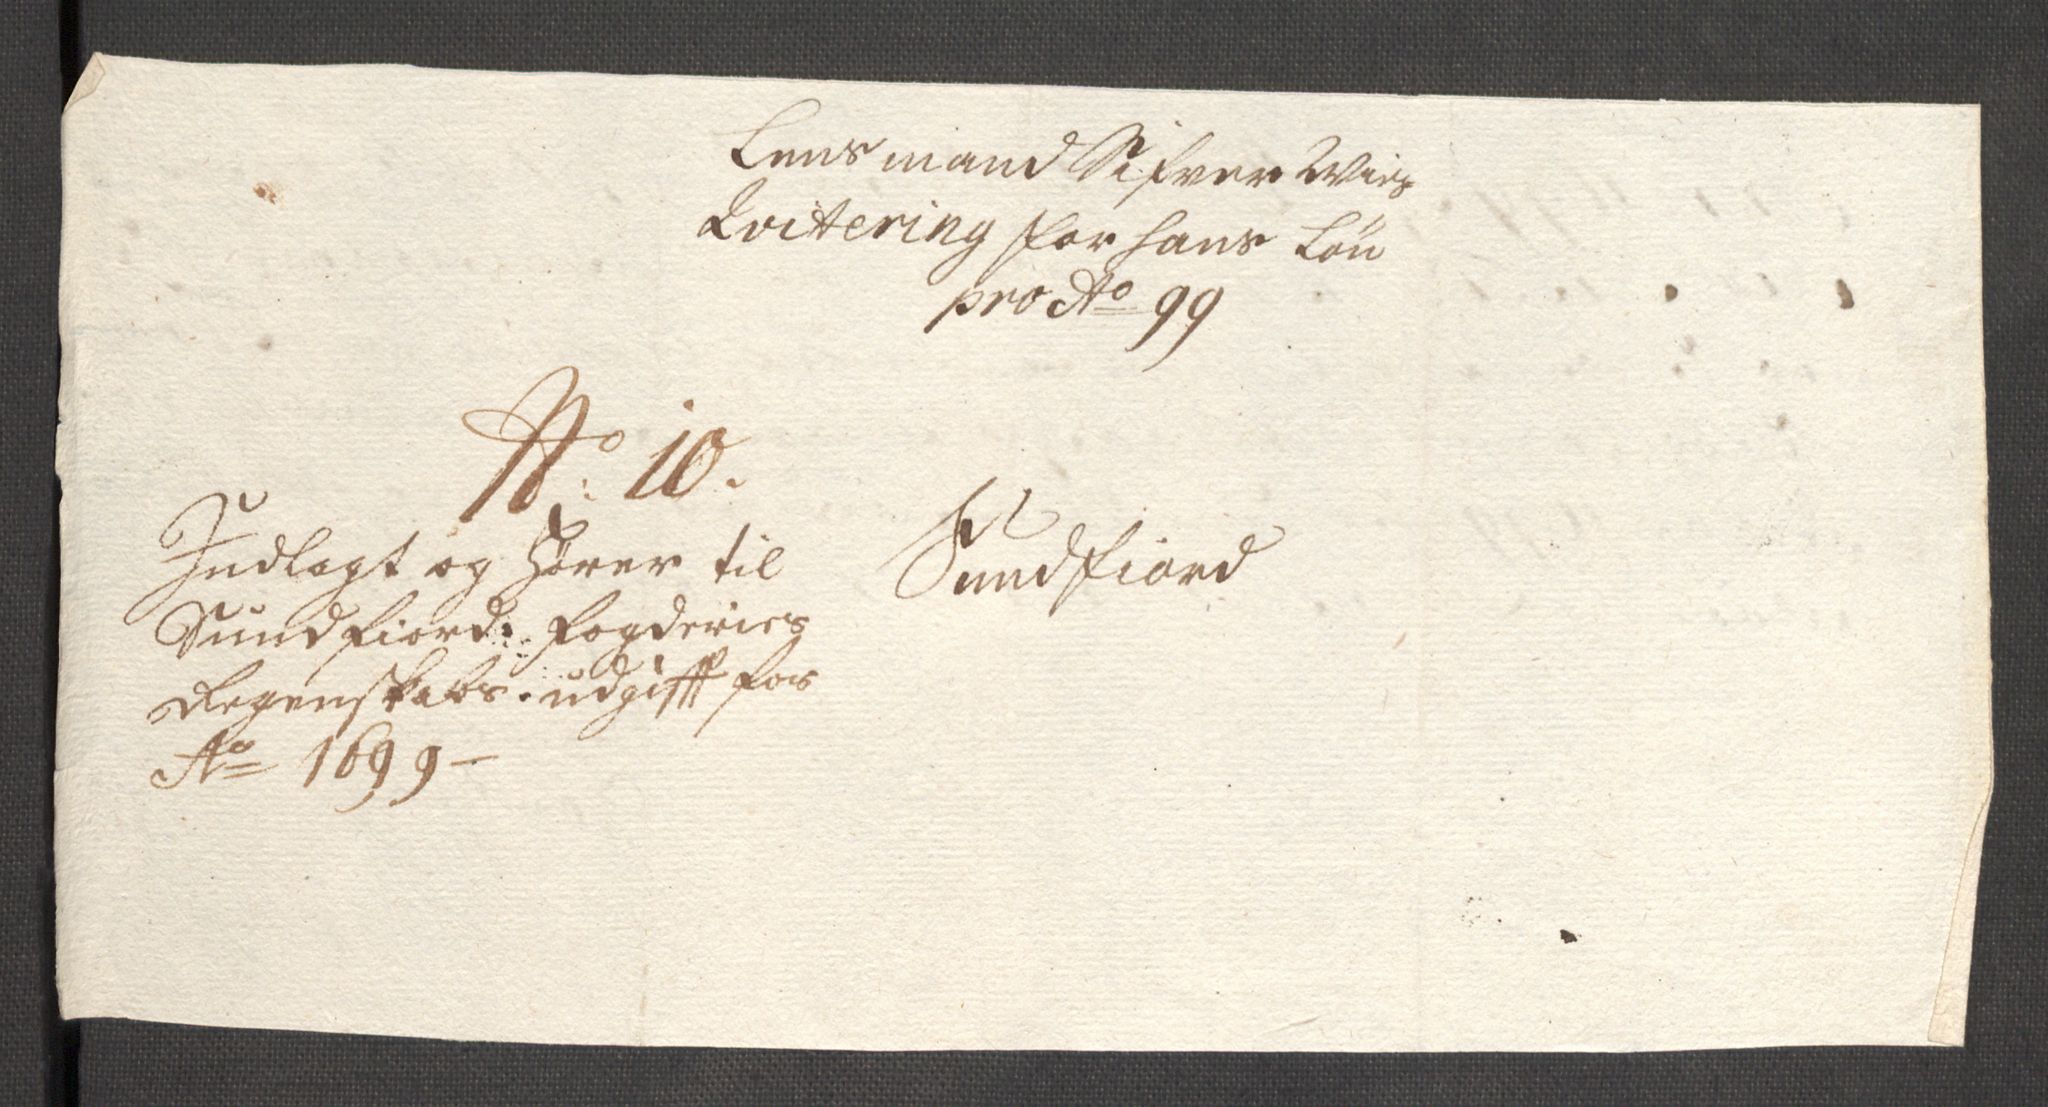 Lensmand Sifver Wies
Qvitering for hans Løn
pro Ao 99
No. 10.
Indlagt og hører til
Sundfiord: fogderies
Regenskabs udgifft for
Ao 1699 –
Sundfiord